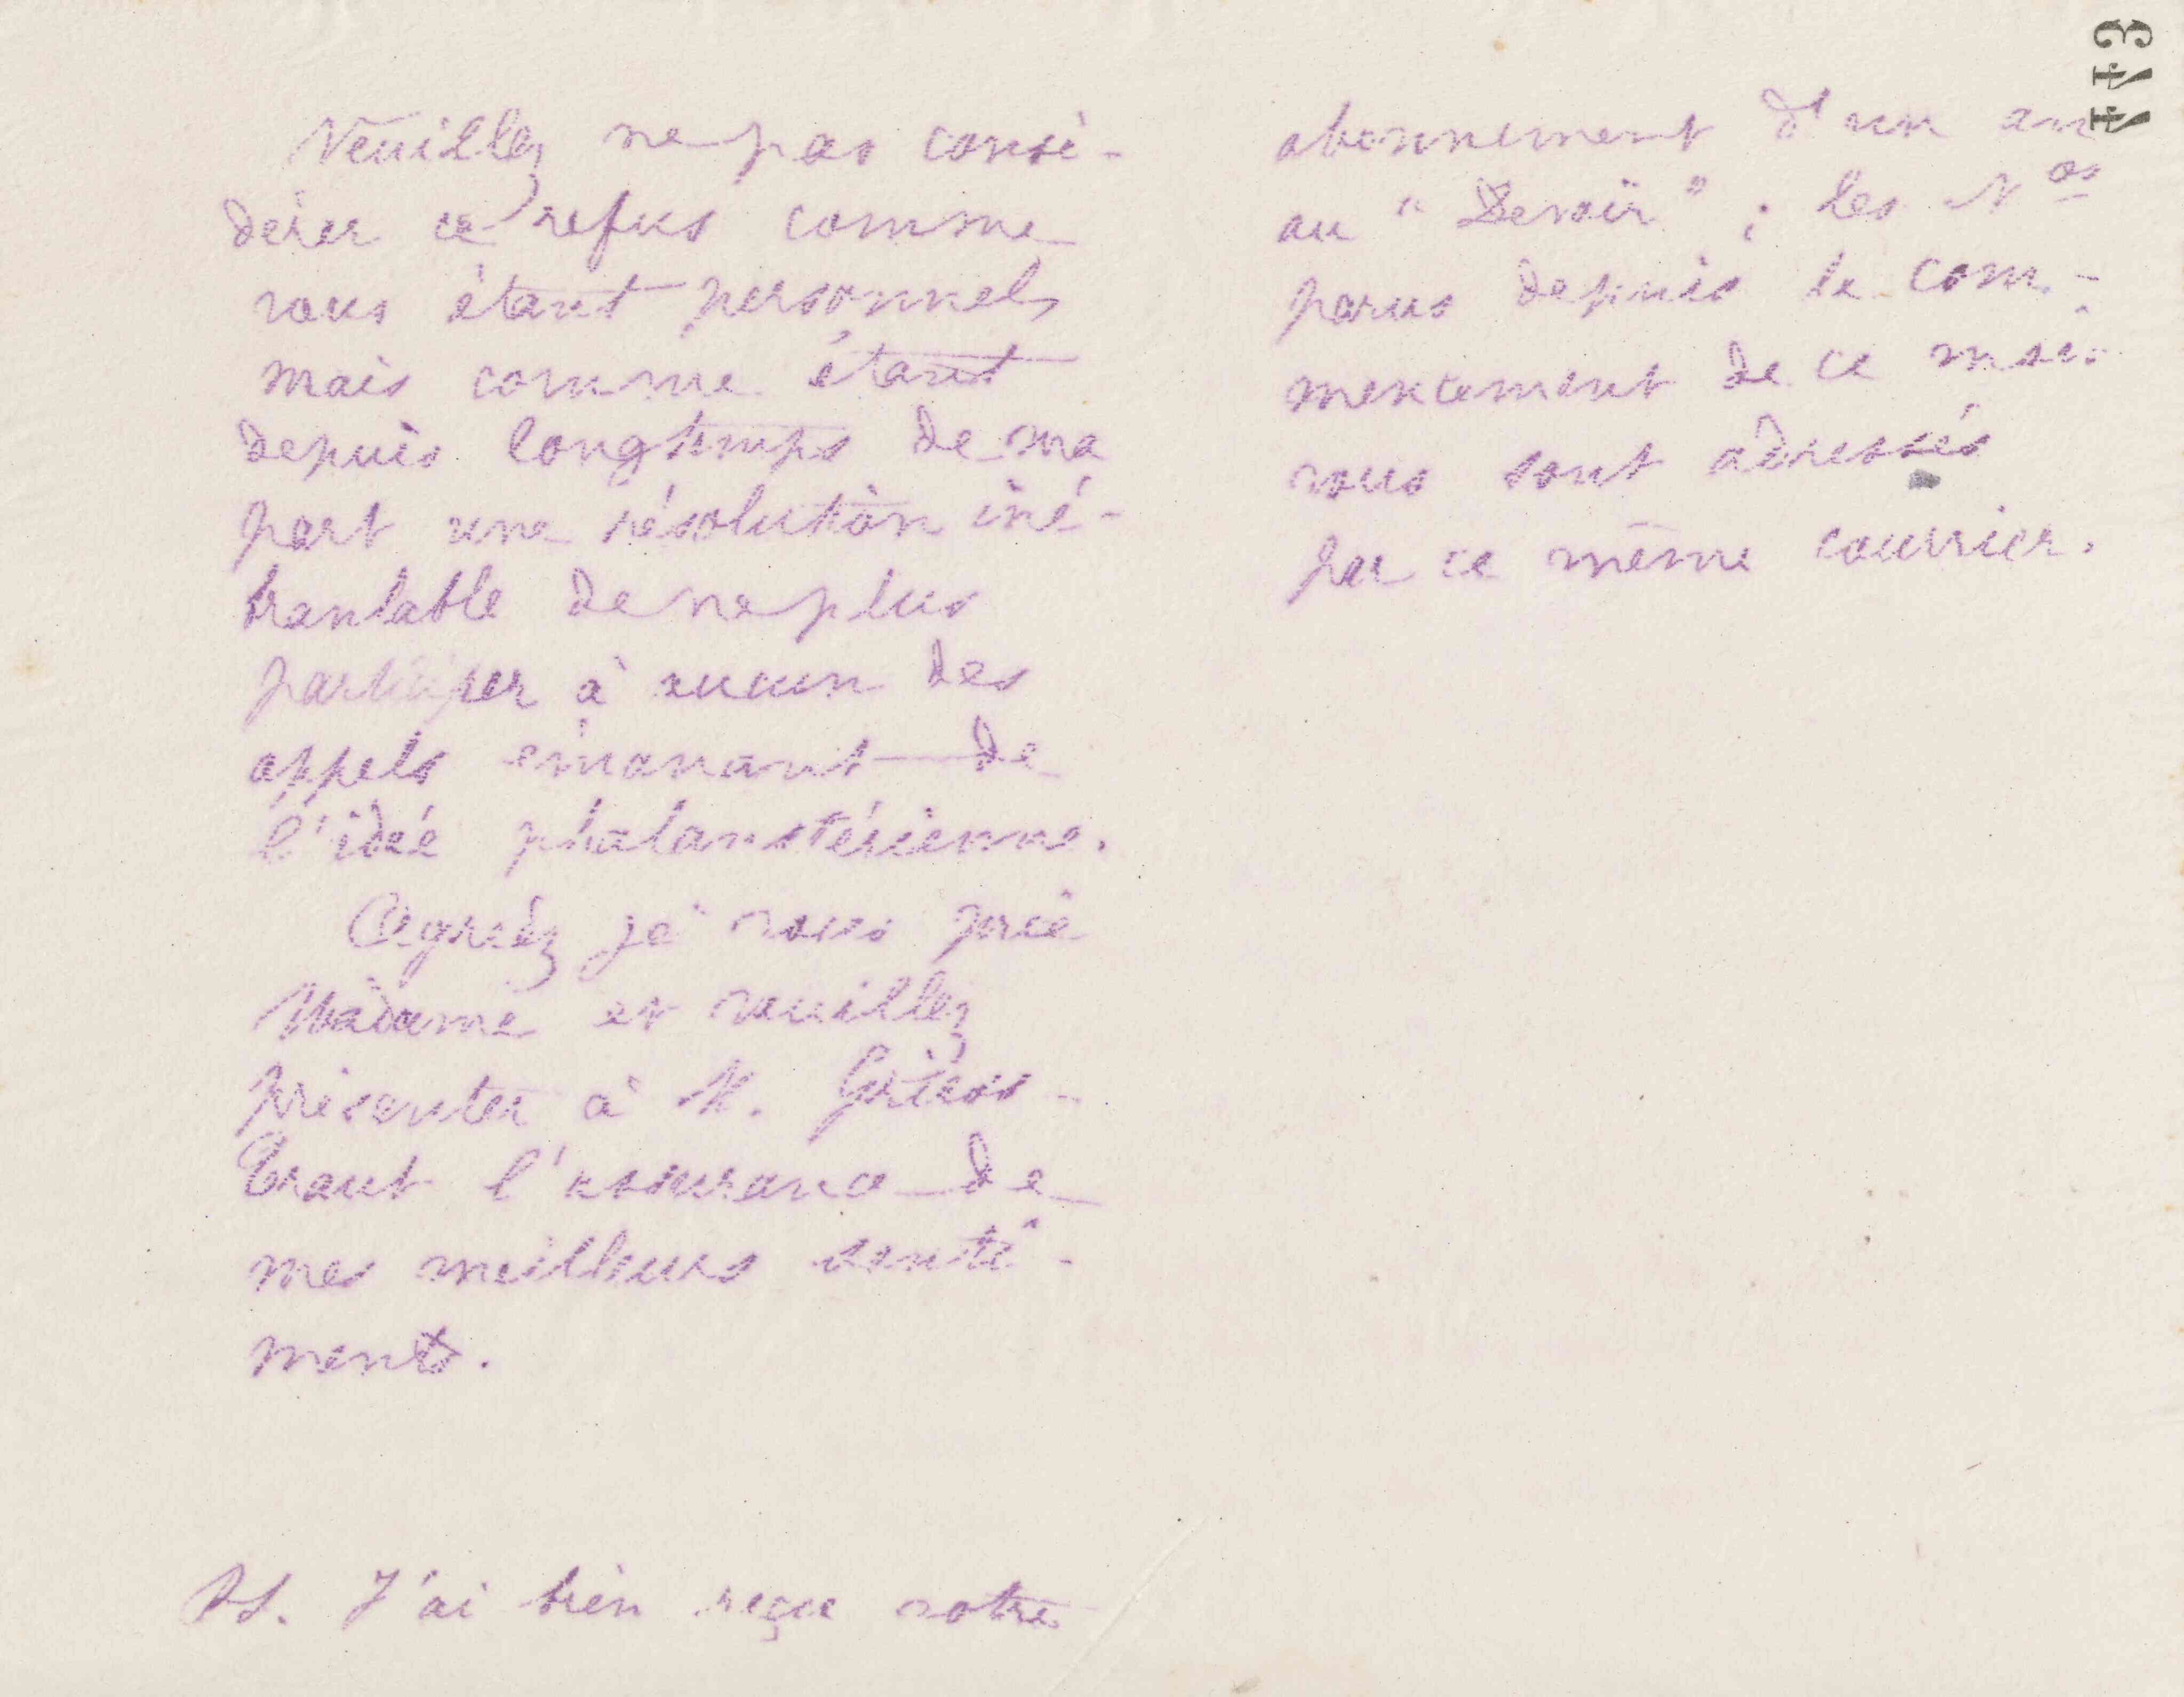 Veuillez ne pas consi-
dérer ce refus comme
vous étant personnel,
mais comme étant
depuis longtemps de ma
part une résolution iné-
branlable de ne plus
participer à aucun des
appels émanant de
l'idée phalanstérienne.
Agréez je vous prie
Madame et veuillez
présenter à M. Griess-
Traut l'assurance de
mes meilleurs senti-
ments.
PS. J'ai bien reçu votre
443
abonnement d'un an
au "Devoir" ; les Nos
parus depuis le com-
mencement de ce mois
vous sont adressés
par ce même courrier.